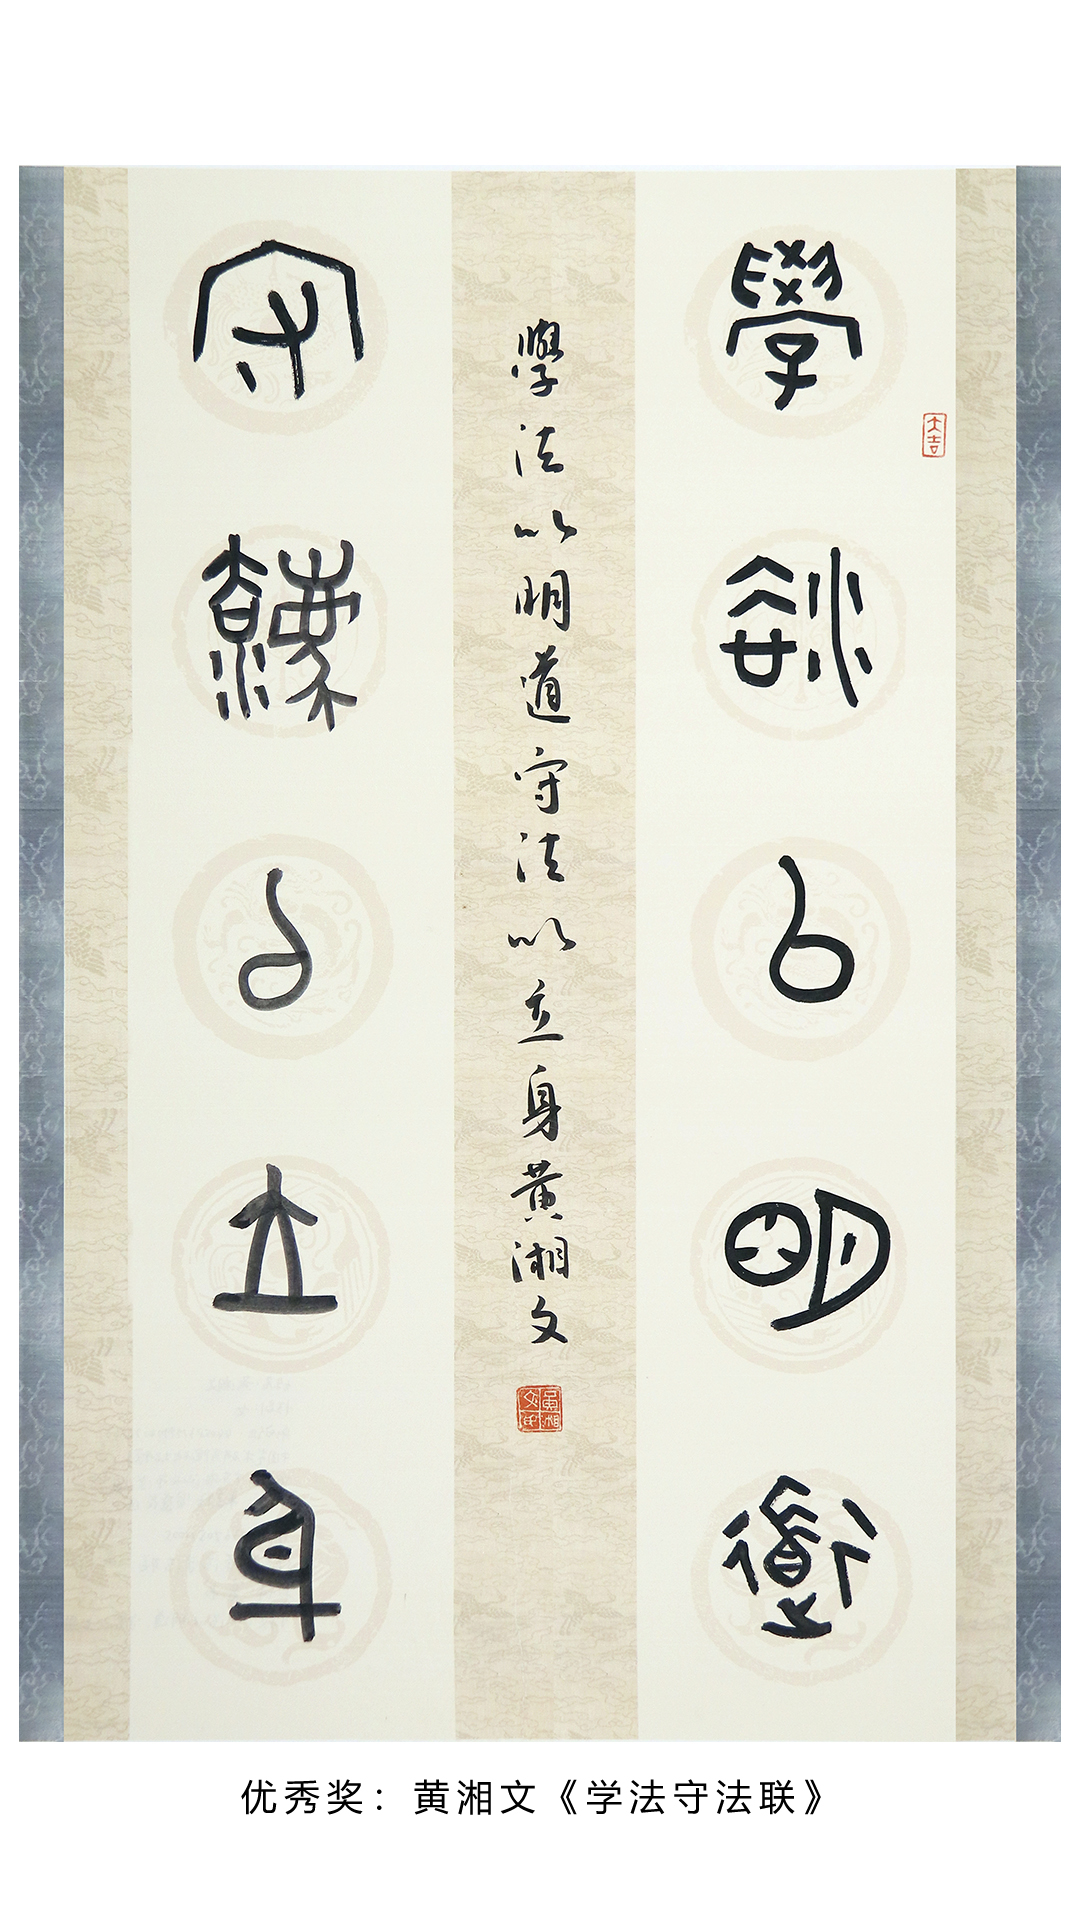 學法以明道
大吉
守灋以立身
學法以明道守法以立身黄湘文
黄湘文印
优秀奖：黄湘文《学法守法联》